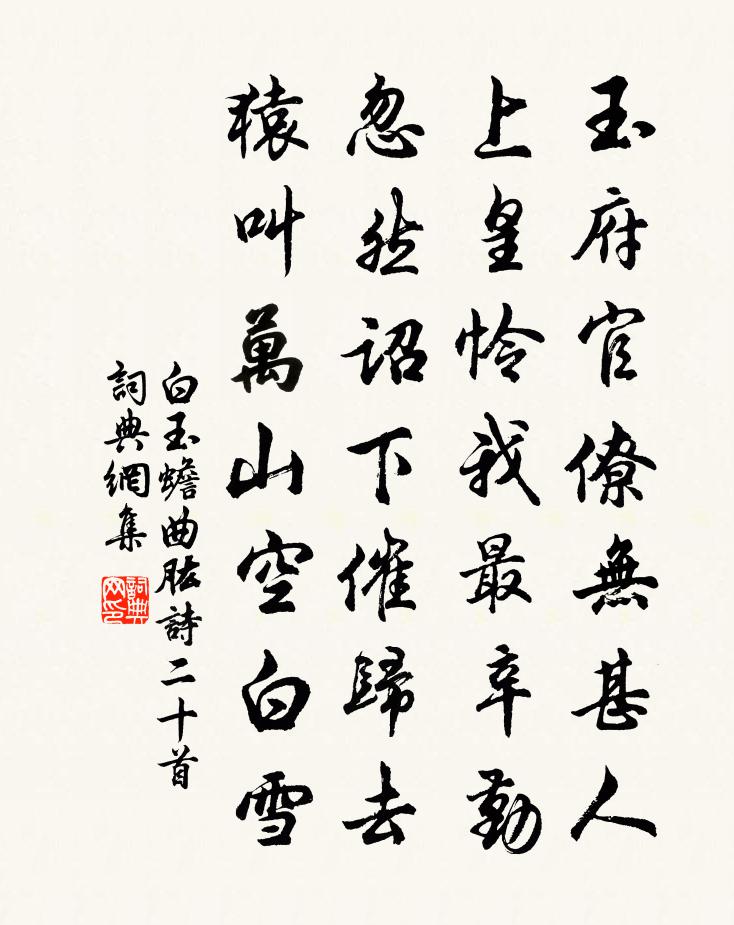 玉府官僚無甚人
上皇憐我最辛勤
忽然詔下催歸去
猿叫萬山空白雪
白玉蟾曲肱詩二十首
詞典網集
詞典網印